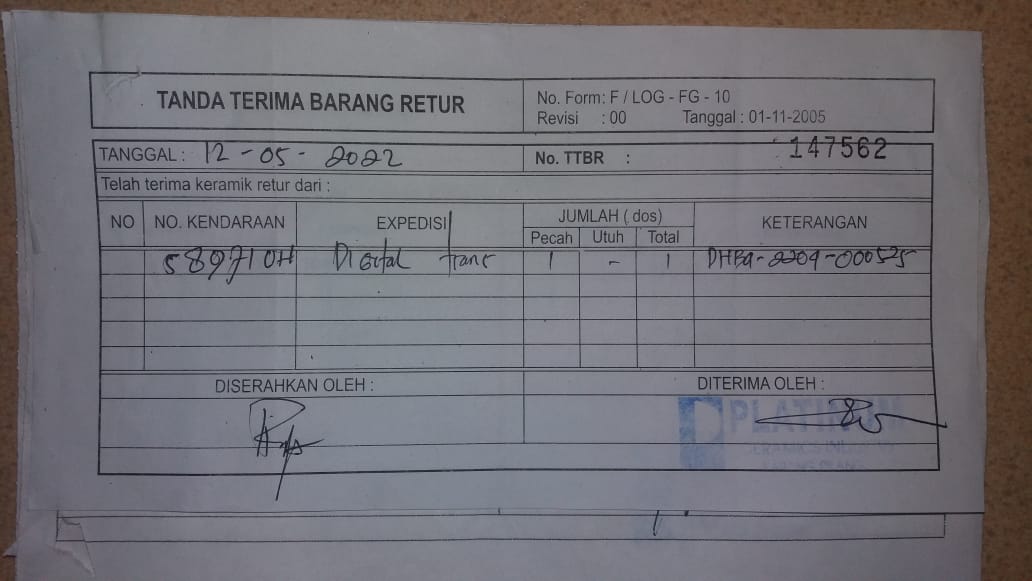 TANDA TERIMA BARANG RETUR
No. Form: F / LOG - FG - 10
Revisi : 00 Tanggal : 01-11-2005
TANGGAL : 12-05-2022 No. TTBR : 147562
Telah terima keramik retur dari :
NO NO. KENDARAAN EXPEDISI JUMLAH ( dos) KETERANGAN
Pecah Utuh Total
Digital trans 1 - 1
DISERAHKAN OLEH : DITERIMA OLEH :
PLATINUM
CERAMICS INDUSTRY